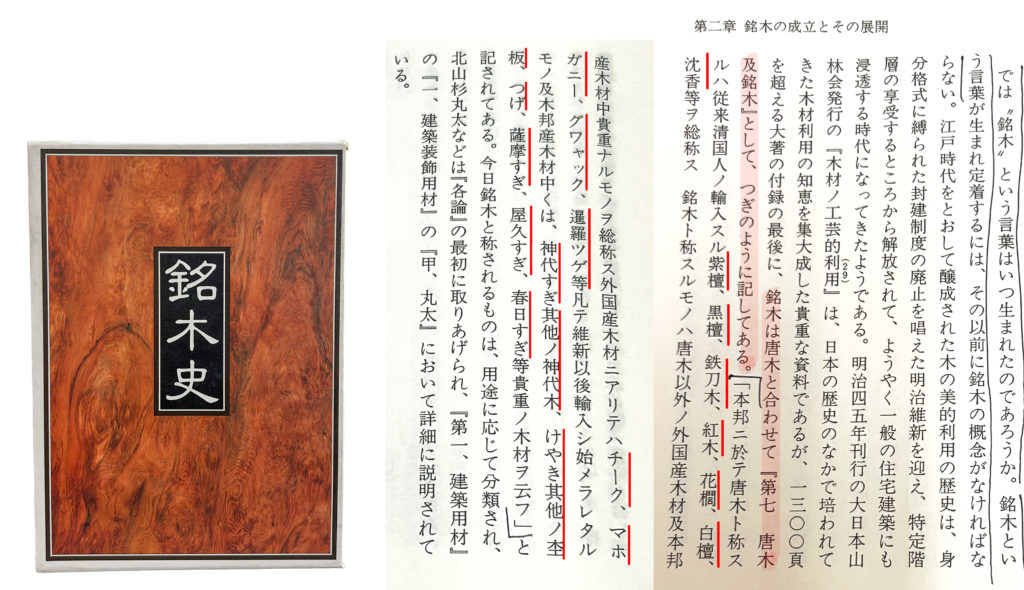 銘木史
第二章 銘木の成立とその展開
では〝銘木〟という言葉はいつ生まれたのであろうか。銘木とい
う言葉が生まれ定着するには、その以前に銘木の概念がなければな
らない。江戸時代をとおして醸成された木の美的利用の歴史は、身
分格式に縛られた封建制度の廃止を唱えた明治維新を迎え、特定階
層の享受するところから解放されて、ようやく一般の住宅建築にも
浸透する時代になってきたようである。明治四五年刊行の大日本山
林会発行の『木材ノ工芸的利用(29)』は、日本の歴史のなかで培われて
きた木材利用の知恵を集大成した貴重な資料であるが、一三〇〇頁
を超える大著の付録の最後に、銘木は唐木と合わせて『第七 唐木
及銘木』として、つぎのように記してある。「本邦ニ於テ唐木ト称ス
ルハ従来清国人ノ輸入スル紫檀、黒檀、鉄刀木、紅木、花櫚、白檀、
沈香等ヲ総称ス 銘木ト称スルモノハ唐木以外ノ外国産木材及本邦
産木材中貴重ナルモノヲ総称ス外国産木材ニアリテハチーク、マホ
ガニー、グワャック、暹羅ツゲ等凡テ維新以後輸入シ始メラレタル
モノ及本邦産木材中くは、神代すぎ其他ノ神代木、けやき其他ノ杢
板、つげ、薩摩すぎ、屋久すぎ、春日すぎ等貴重ノ木材ヲ云フ」と
記されてある。今日銘木と称されるものは、用途に応じて分類され、
北山杉丸太などは『各論』の最初に取りあげられ、『第一、建築用材』
の『一、建築装飾用材』の『甲、丸太』において詳細に説明されて
いる。